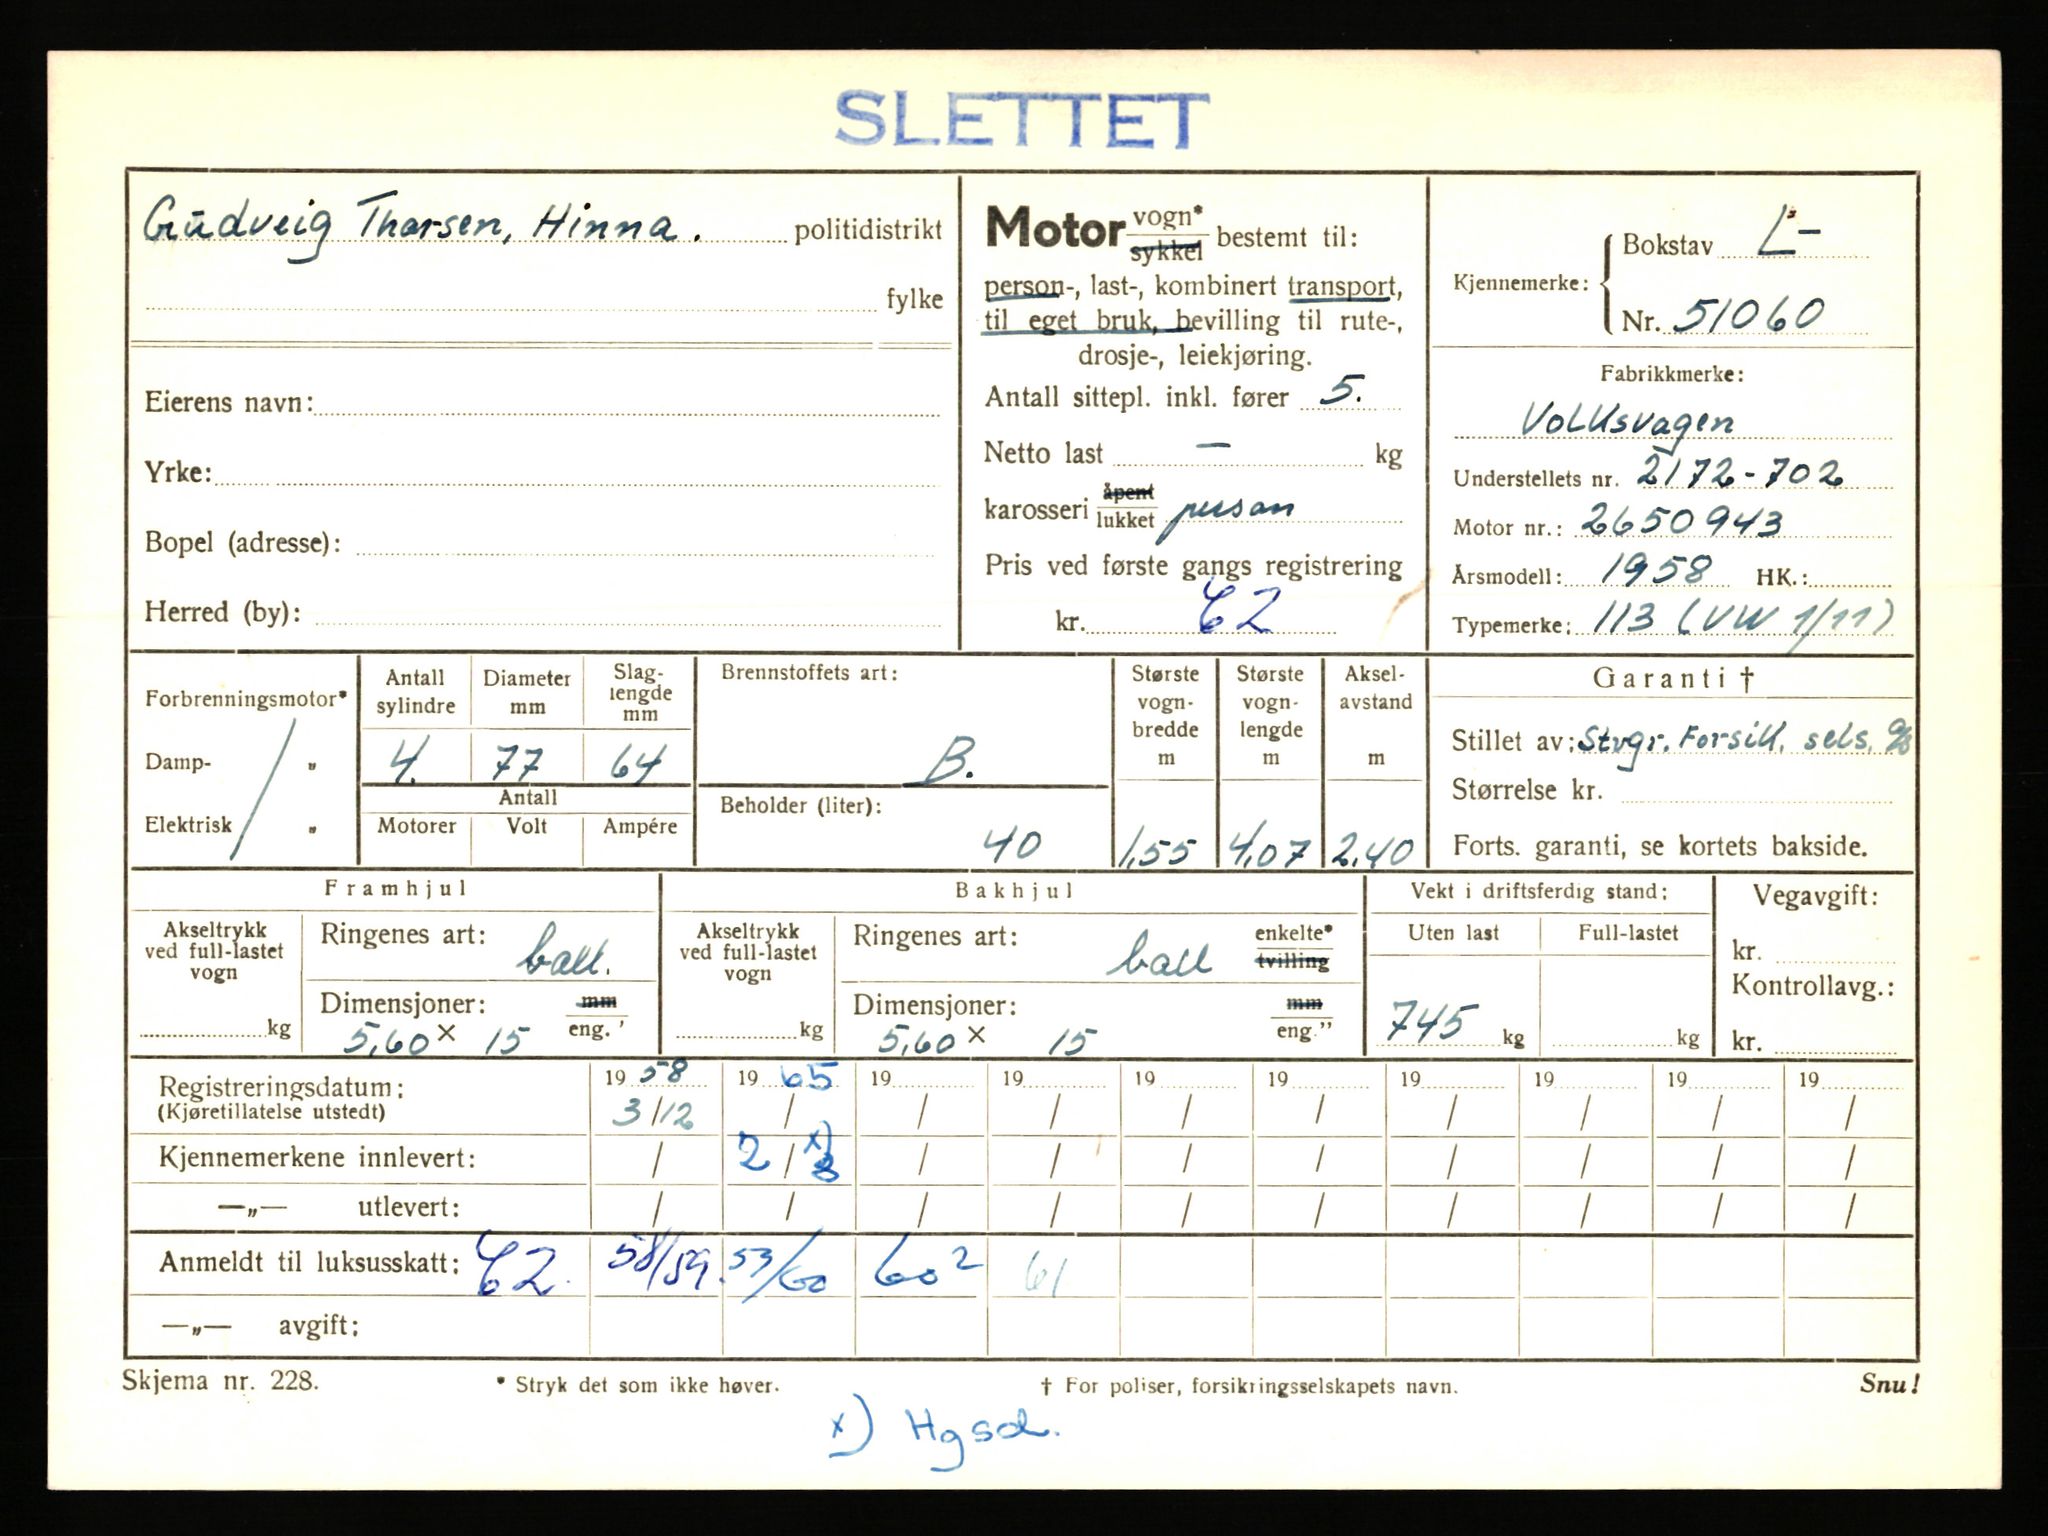 SLETTET
Gudveig Thorsen, Hinna. politidistrikt
fylke
Eierens navn:
Yrke:
Bopel (adresse):
Herred (by):
Motor vogn* sykkel bestemt til:
person-, last-, kombinert transport,
til eget bruk, bevilling til rute-,
drosje-, leiekjøring.
Antall sittepl. inkl. fører 5.
Netto last — kg
karosseri åpent lukket person
Pris ved første gangs registrering
kr.
Kjennemerke: Bokstav L-
Nr. 51060
Fabrikkmerke:
Volksvagen
Understellets nr. 2172-702
Motor nr.: 2650943
Årsmodell: 1958 HK.:
Typemerke: 113 (VW 1/11)
Forbrenningsmotor*
Damp- „
Elektrisk „
Antall sylindre 4.
Diameter mm 77
Slaglengde mm 64
Antall
Motorer Volt Ampére
Brennstoffets art:
B.
Beholder (liter):
40
Største vognbredde m 1,55
Største vognlengde m 4,07
Akselavstand m 2,40
Garanti †
Stillet av: Stvgr. Forsik. sels.
Størrelse kr.
Forts. garanti, se kortets bakside.
Framhjul
Akseltrykk ved full-lastet vogn
kg
Ringenes art: ball.
Dimensjoner: mm
5,60 x 15 eng. '
Bakhjul
Akseltrykk ved full-lastet vogn
kg
Ringenes art: ball enkelte* tvilling
Dimensjoner: mm
5,60 x 15 eng."
Vekt i driftsferdig stand:
Uten last Full-lastet
745 kg kg
Vegavgift:
kr.
Kontrollavg.:
kr.
Registreringsdatum: 19 58 19 65 19 19 19 19 19 19 19 19
(Kjøretillatelse utstedt) 3/12 / / / / / / / / /
Kjennemerkene innlevert: / 2/8 x) / / / / / / / /
—„— utlevert: / / / / / / / / / /
Anmeldt til luksusskatt: 58/59. 53/60 60 2 61
—„— avgift:
Skjema nr. 228. * Stryk det som ikke høver. † For poliser, forsikringsselskapets navn. Snu!
x) Hgsd.